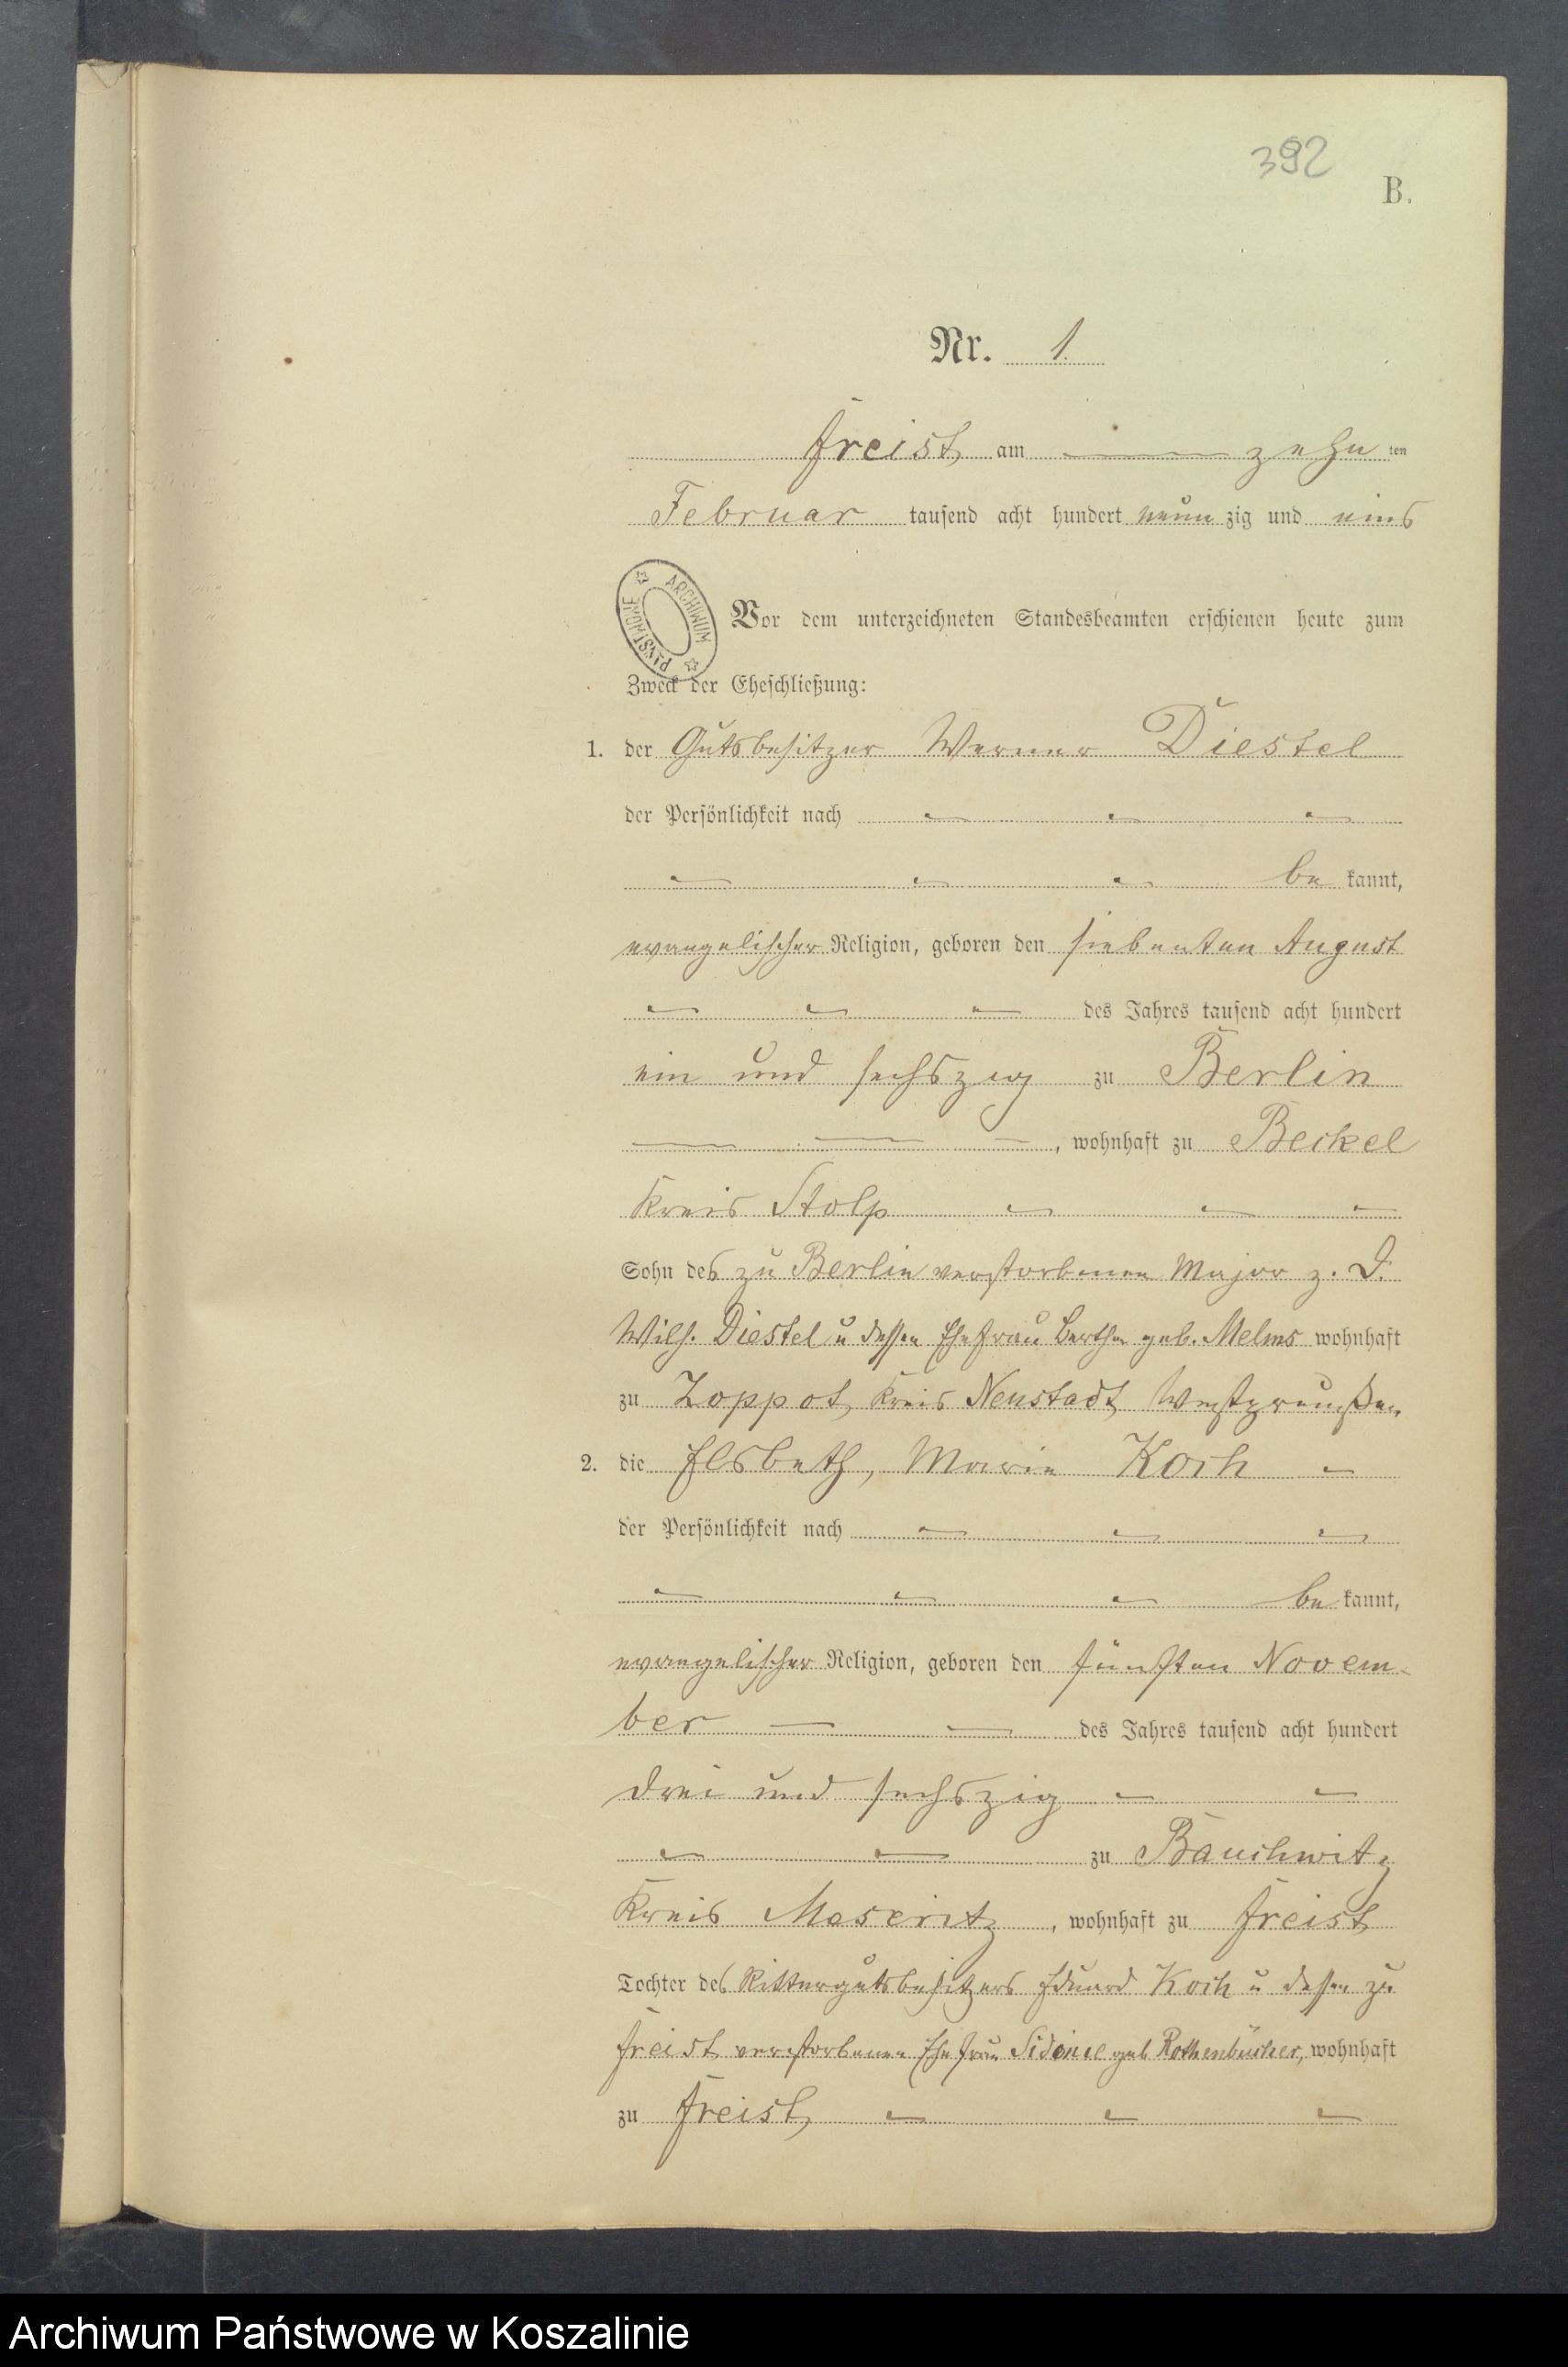 392
B.
Nr. 1.
Freist am zehn ten
Februar tausend acht hundert neun zig und eins
ARCHIWUM PAŃSTWOWE
Vor dem unterzeichneten Standesbeamten erschienen heute zum
Zweck der Eheschließung:
1. der Gutsbesitzer Werner Diestel
der Persönlichkeit nach
be kannt,
evangelischer Religion, geboren den siebenten August
des Jahres tausend acht hundert
ein und sechszig zu Berlin
, wohnhaft zu Beckel
Kreis Stolp
Sohn des zu Berlin verstorbenen Major z. D.
Wilh. Diestel u dessen Ehefrau Bertha geb. Melms wohnhaft
zu Zoppot, Kreis Neustadt Westpreußen
2. die Elsbeth, Marie Koch
der Persönlichkeit nach
be kannt,
evangelischer Religion, geboren den fünften Novem-
ber des Jahres tausend acht hundert
drei und sechszig
zu Bauchwitz
Kreis Meseritz, wohnhaft zu Freist
Tochter des Rittergutsbesitzers Eduard Koch u dessen zu
Freist verstorbenen Ehefrau Sidonie geb Rothenbücher, wohnhaft
zu Freist,
Archiwum Państwowe w Koszalinie